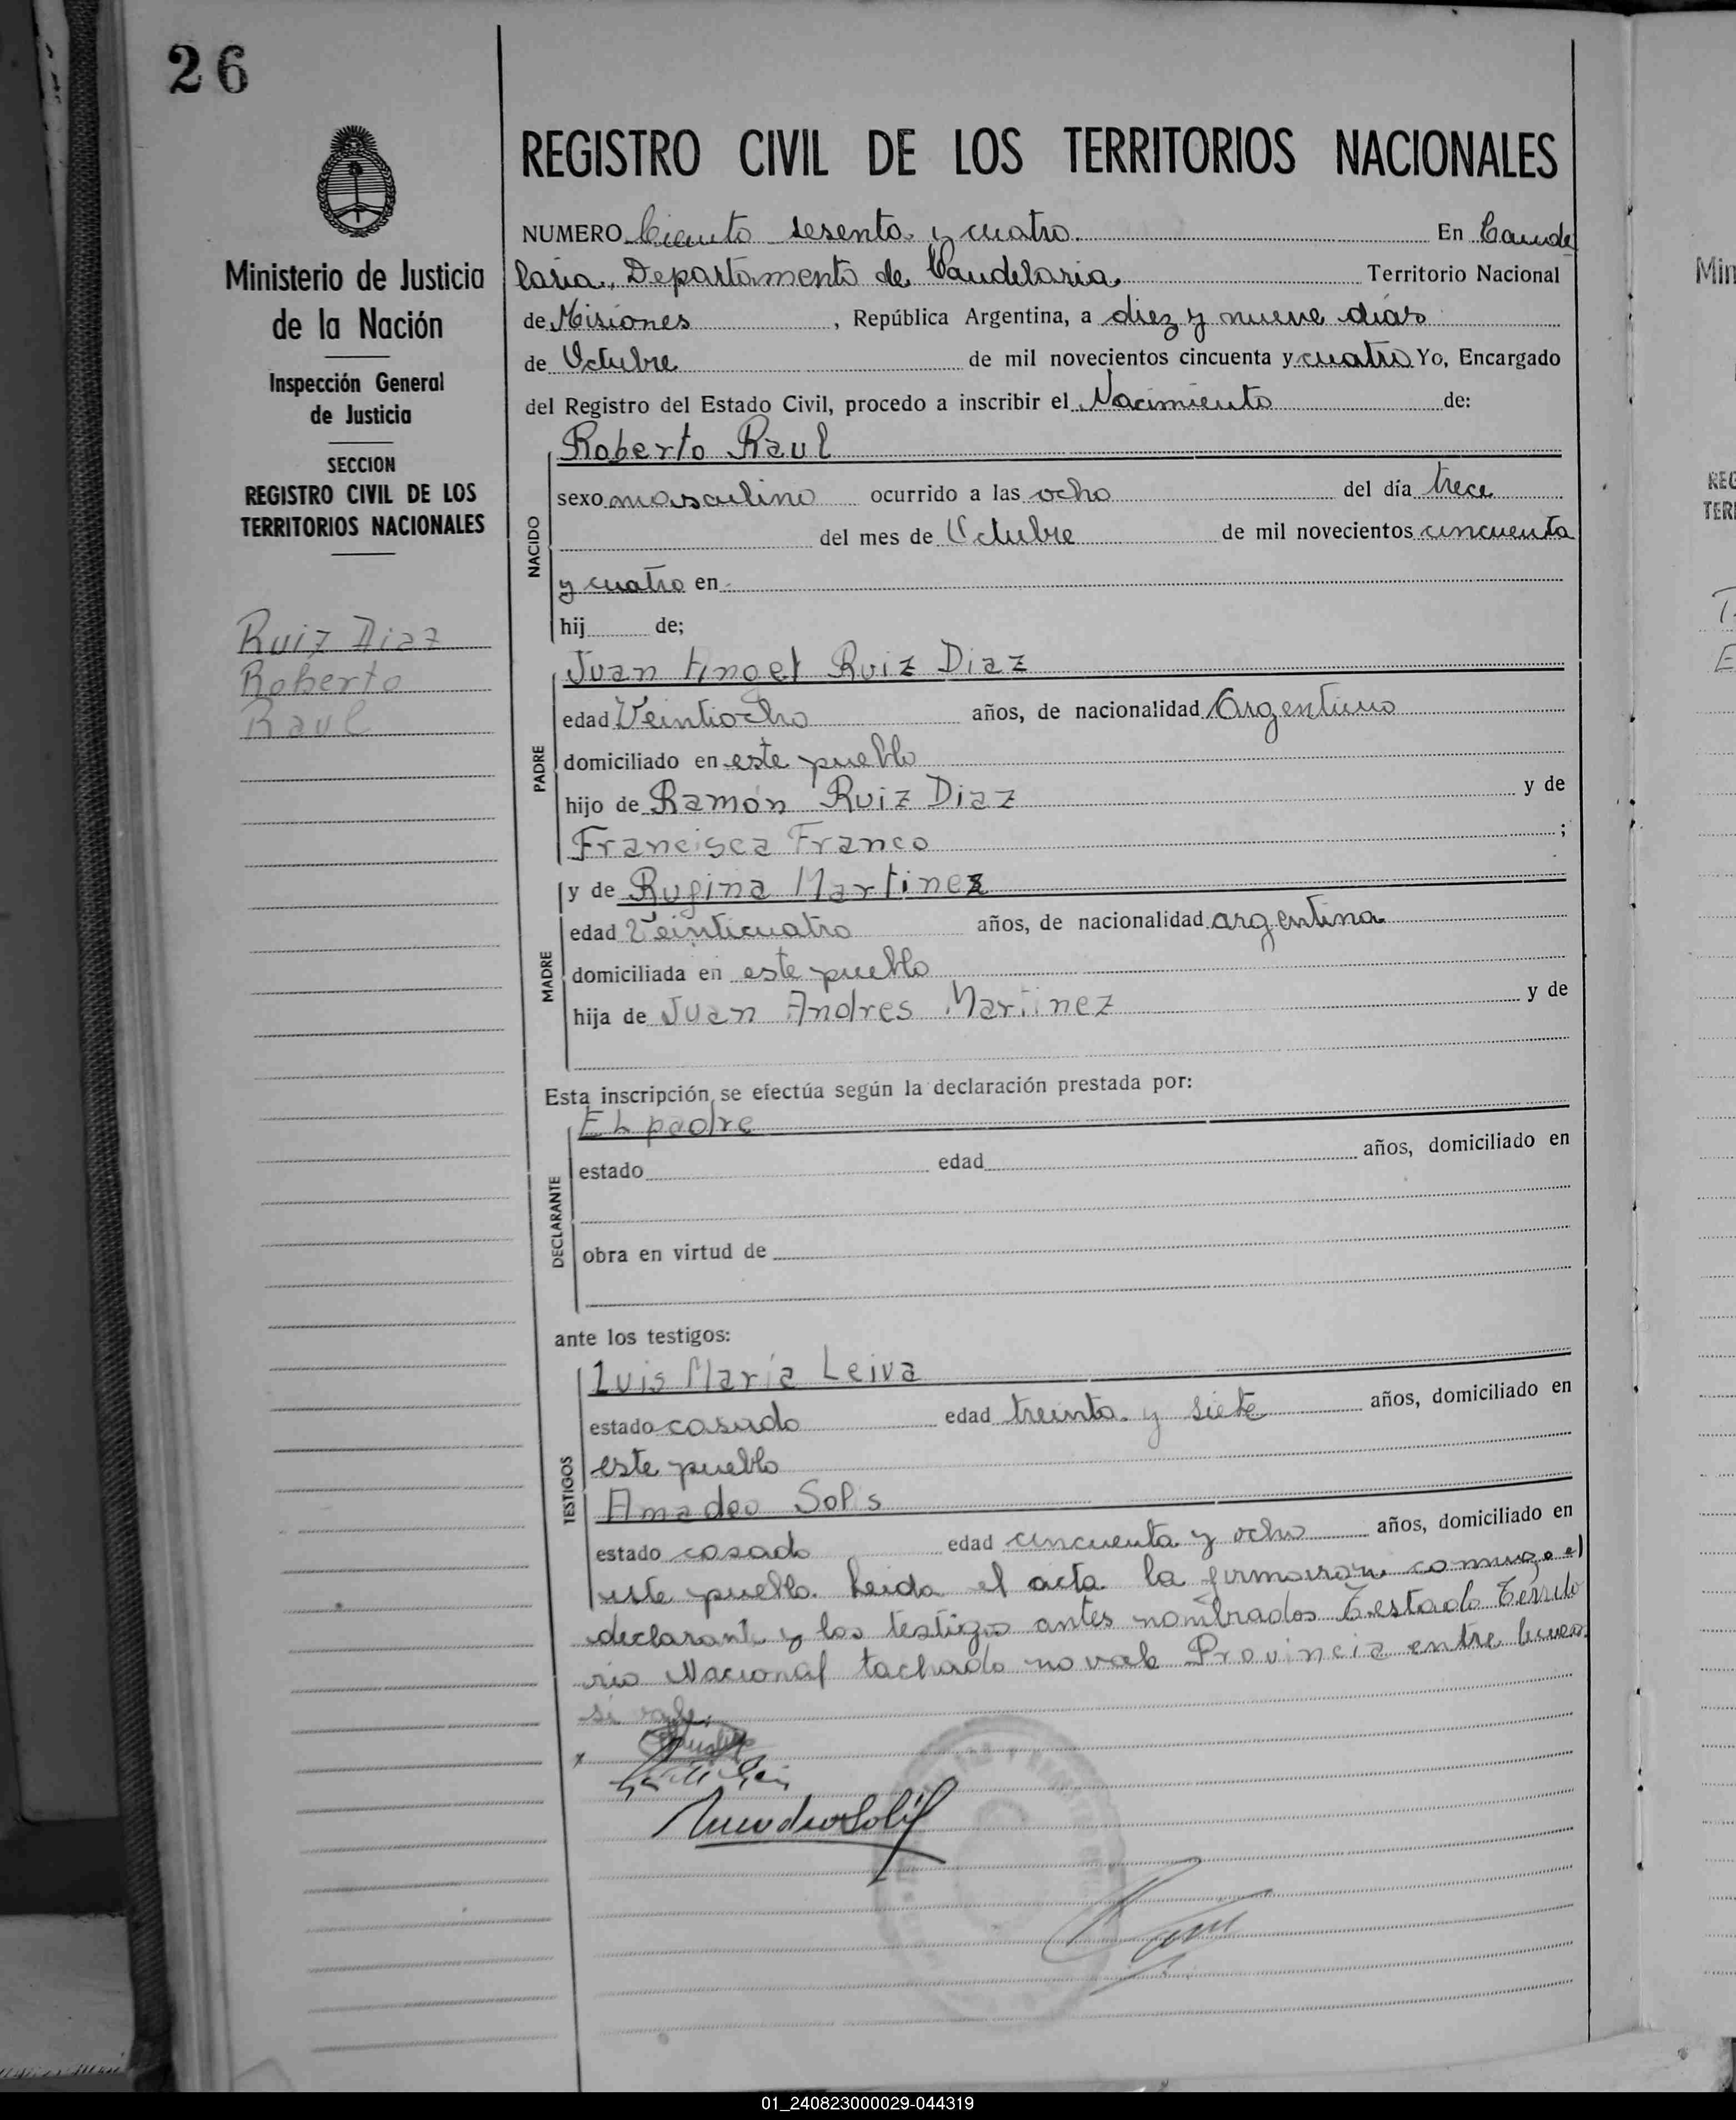 26
REGISTRO CIVIL DE LOS TERRITORIOS NACIONALES
Ministerio de Justicia
de la Nación
Inspección General
de Justicia
SECCION
REGISTRO CIVIL DE LOS
TERRITORIOS NACIONALES
Ruiz Diaz
Roberto
Raul
NUMERO Ciento sesenta y cuatro. En Cande
laria, Departamento de Candelaria Territorio Nacional
de Misiones, República Argentina, a diez y nueve días
de Octubre de mil novecientos cincuenta y cuatro Yo, Encargado
del Registro del Estado Civil, procedo a inscribir el Nacimiento de:
NACIDO
Roberto Raul
sexo masculino ocurrido a las ocho del día trece
del mes de Octubre de mil novecientos cincuenta
y cuatro en
hij de;
PADRE
Juan Angel Ruiz Diaz
edad Veintiocho años, de nacionalidad Argentino
domiciliado en este pueblo
hijo de Ramón Ruiz Diaz y de
Francisca Franco ;
MADRE
y de Rufina Martinez
edad Veinticuatro años, de nacionalidad argentina
domiciliada en este pueblo
hija de Juan Andres Martinez y de
Esta inscripción se efectúa según la declaración prestada por:
DECLARANTE
EL padre
estado edad años, domiciliado en
obra en virtud de
ante los testigos:
TESTIGOS
Luis María Leiva
estado casado edad treinta y siete años, domiciliado en
este pueblo
Amadeo Solis
estado casado edad cincuenta y ocho años, domiciliado en
este pueblo. Leida el acta la firmaron conmigo el
declarante y los testigos antes nombrados Testado Territo
rio Nacional tachado no vale Provincia entre lineas
si vale.
Amadeo Solis
Min
REG
TER
01_240823000029-044319